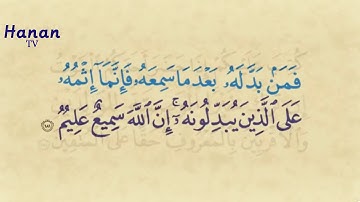 Hanan
TV
فَمَنۢ بَدَّلَهُۥ بَعۡدَ مَا سَمِعَهُۥ فَإِنَّمَآ إِثۡمُهُۥ
عَلَى ٱلَّذِينَ يُبَدِّلُونَهُۥٓۚ إِنَّ ٱللَّهَ سَمِيعٌ عَلِيمٞ